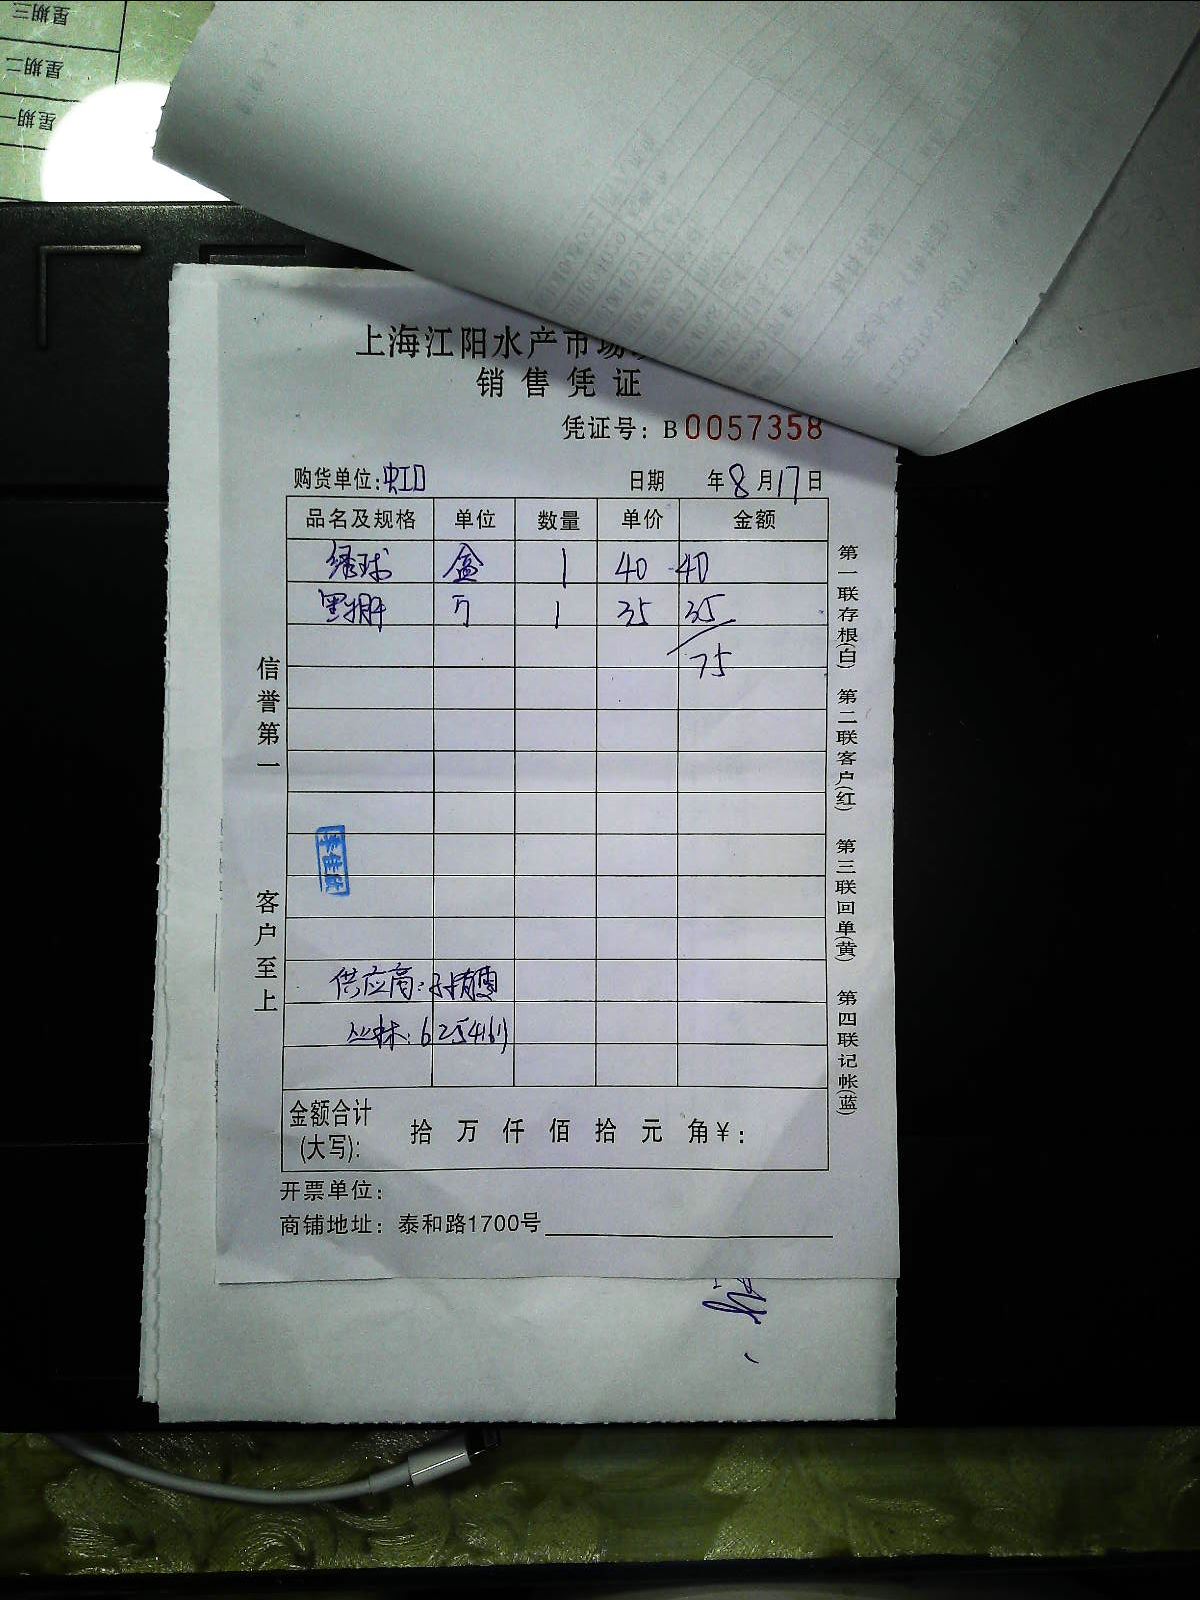 星期三
星期二
星期一
上海江阳水产市场
销售凭证
凭证号：B0057358
购货单位：虹口 日期 年8月17日
品名及规格 单位 数量 单价 金额
绿球 盒 1 40 40
黑拥 1 35 35
75
信誉第一
客户至上
供应商：
丛林：6254161
金额合计(大写)： 拾 万 仟 佰 拾 元 角¥：
开票单位：
商铺地址：泰和路1700号
第一联存根(白) 第二联客户(红) 第三联回单(黄) 第四联记帐(蓝)